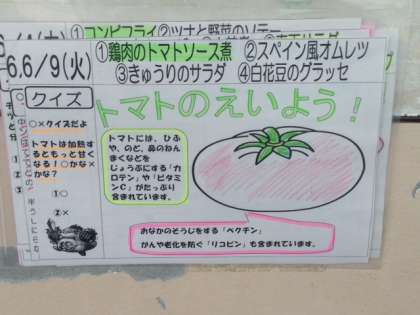 ①コンビフライ②ツナと野菜のソテー
6.6/9(火)
①鶏肉のトマトソース煮 ②スペイン風オムレツ
③きゅうりのサラダ ④白花豆のグラッセ
クイズ
○×クイズだよ
トマトは加熱す
るともっと甘く
なる！○かな×
かな？
①○
②×
トマトのえいよう！
トマトには、ひふ
や、のど、鼻のねん
まくなどを
じょうぶにする「カ
ロテン」や「ビタミ
ンC」がたっぷり
含まれています。
おなかのそうじをする「ペクチン」
がんや老化を防ぐ「リコピン」も含まれています。